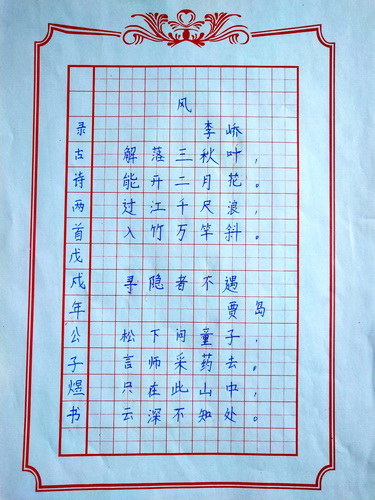 风
李峤
解落三秋叶，
能开二月花。
过江千尺浪，
入竹万竿斜。
寻隐者不遇
贾岛
松下问童子．
言师采药去。
只在此山中，
云深不知处。
录古诗两首戊戌年公子煜书